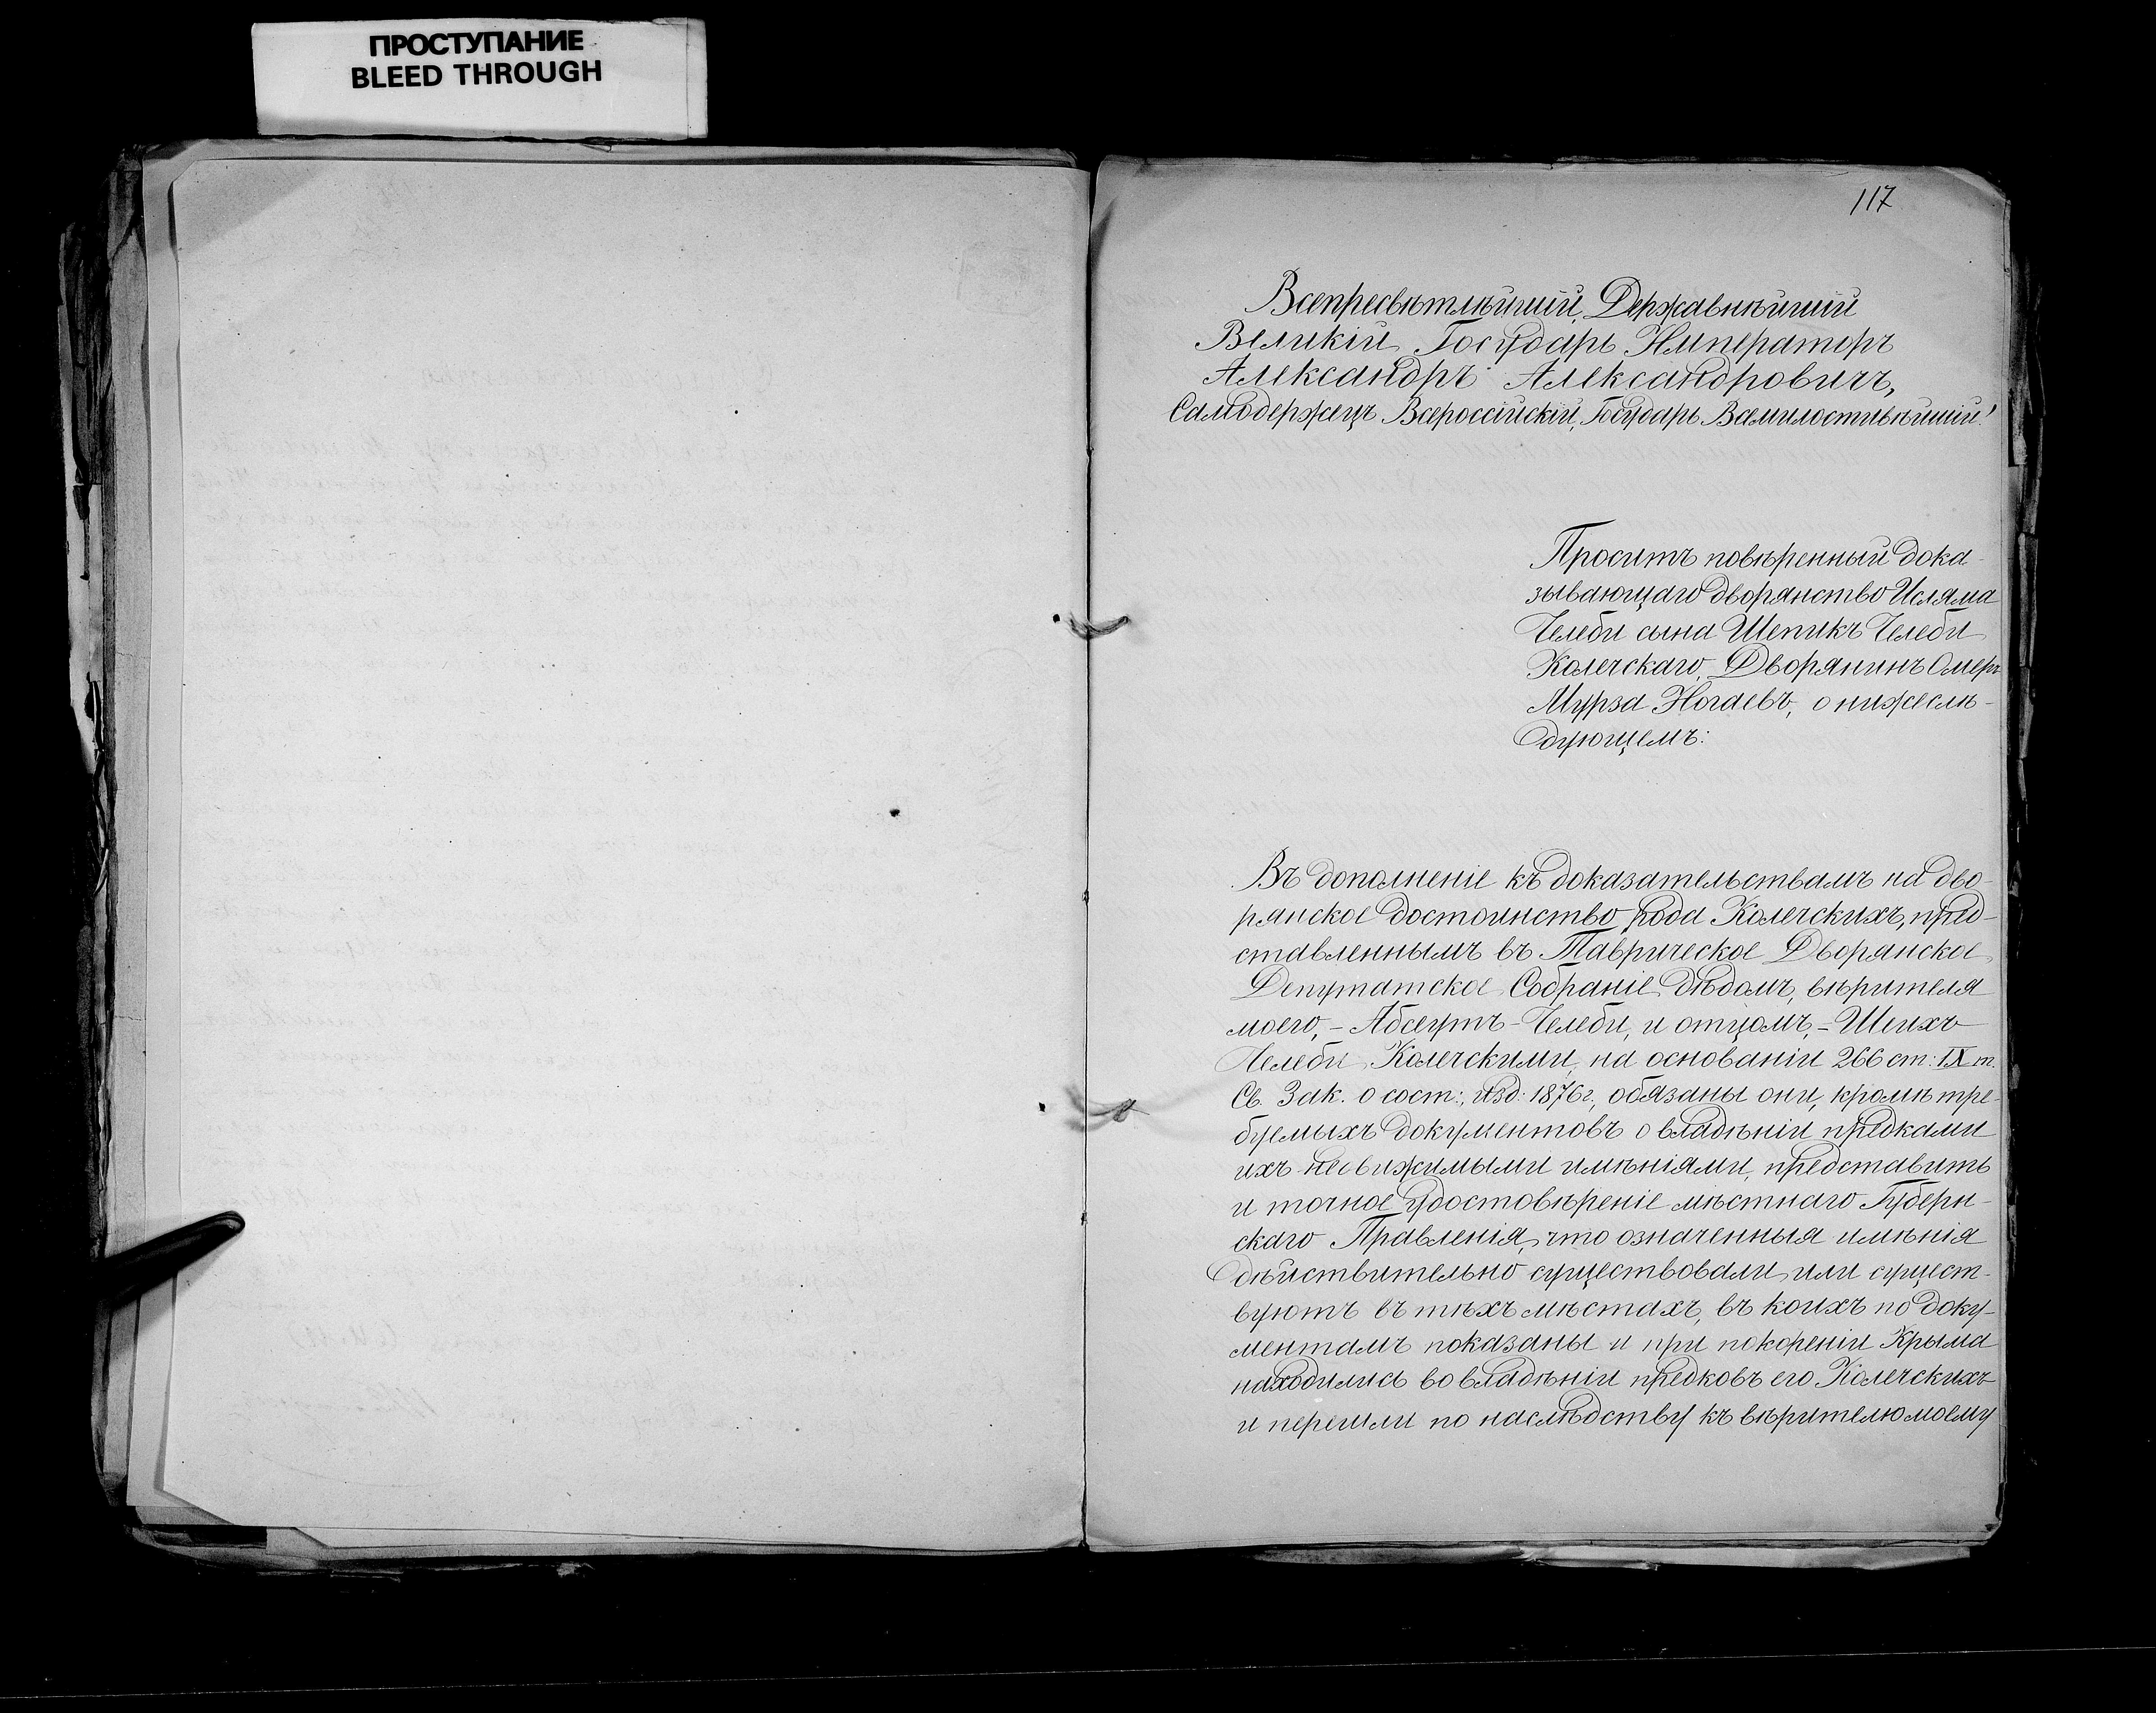 ПРОСТУПАНИЕ
BLEED THROUGH
117
Всепресвѣтлѣйшій, Державнѣйшій
Великій Государь Императоръ
Александръ Александровичъ,
Самодержецъ Всероссійскій, Государь Всемилостивѣйшій!
Проситъ повѣренный дока-
зывающаго дворянство Исляма
Челеби сына Шепикъ Челеби
Калечскаго, Дворянинъ Омеръ
Мурза Ногаевъ, о нижеслѣ-
дующемъ:
Въ дополненіе къ доказательствамъ на дво-
рянское достоинство рода Калечскихъ, пред-
ставленнымъ въ Таврическое Дворянское
Депутатское Собраніе дѣдомъ, вѣрителя
моего, - Абсеутъ - Челеби, и отцомъ, - Шеихъ
Челеби Калечскими, на основаніи 266 ст: IX т.
Св. Зак. о сост:, изд: 1876 г., обязаны они, кромѣ тре-
буемыхъ документовъ о владѣніи предками
ихъ недвижимыми имѣніями, представить
и точное удостовѣреніе мѣстнаго Губерн-
скаго Правленія, что означенныя имѣнія
дѣйствительно существовали или сущест-
вуютъ въ тѣхъ мѣстахъ, въ коихъ по доку-
ментамъ показаны и при покореніи Крыма
находились во владѣніи предковъ его Калечскихъ
и перешли по наслѣдству къ вѣрителю моему